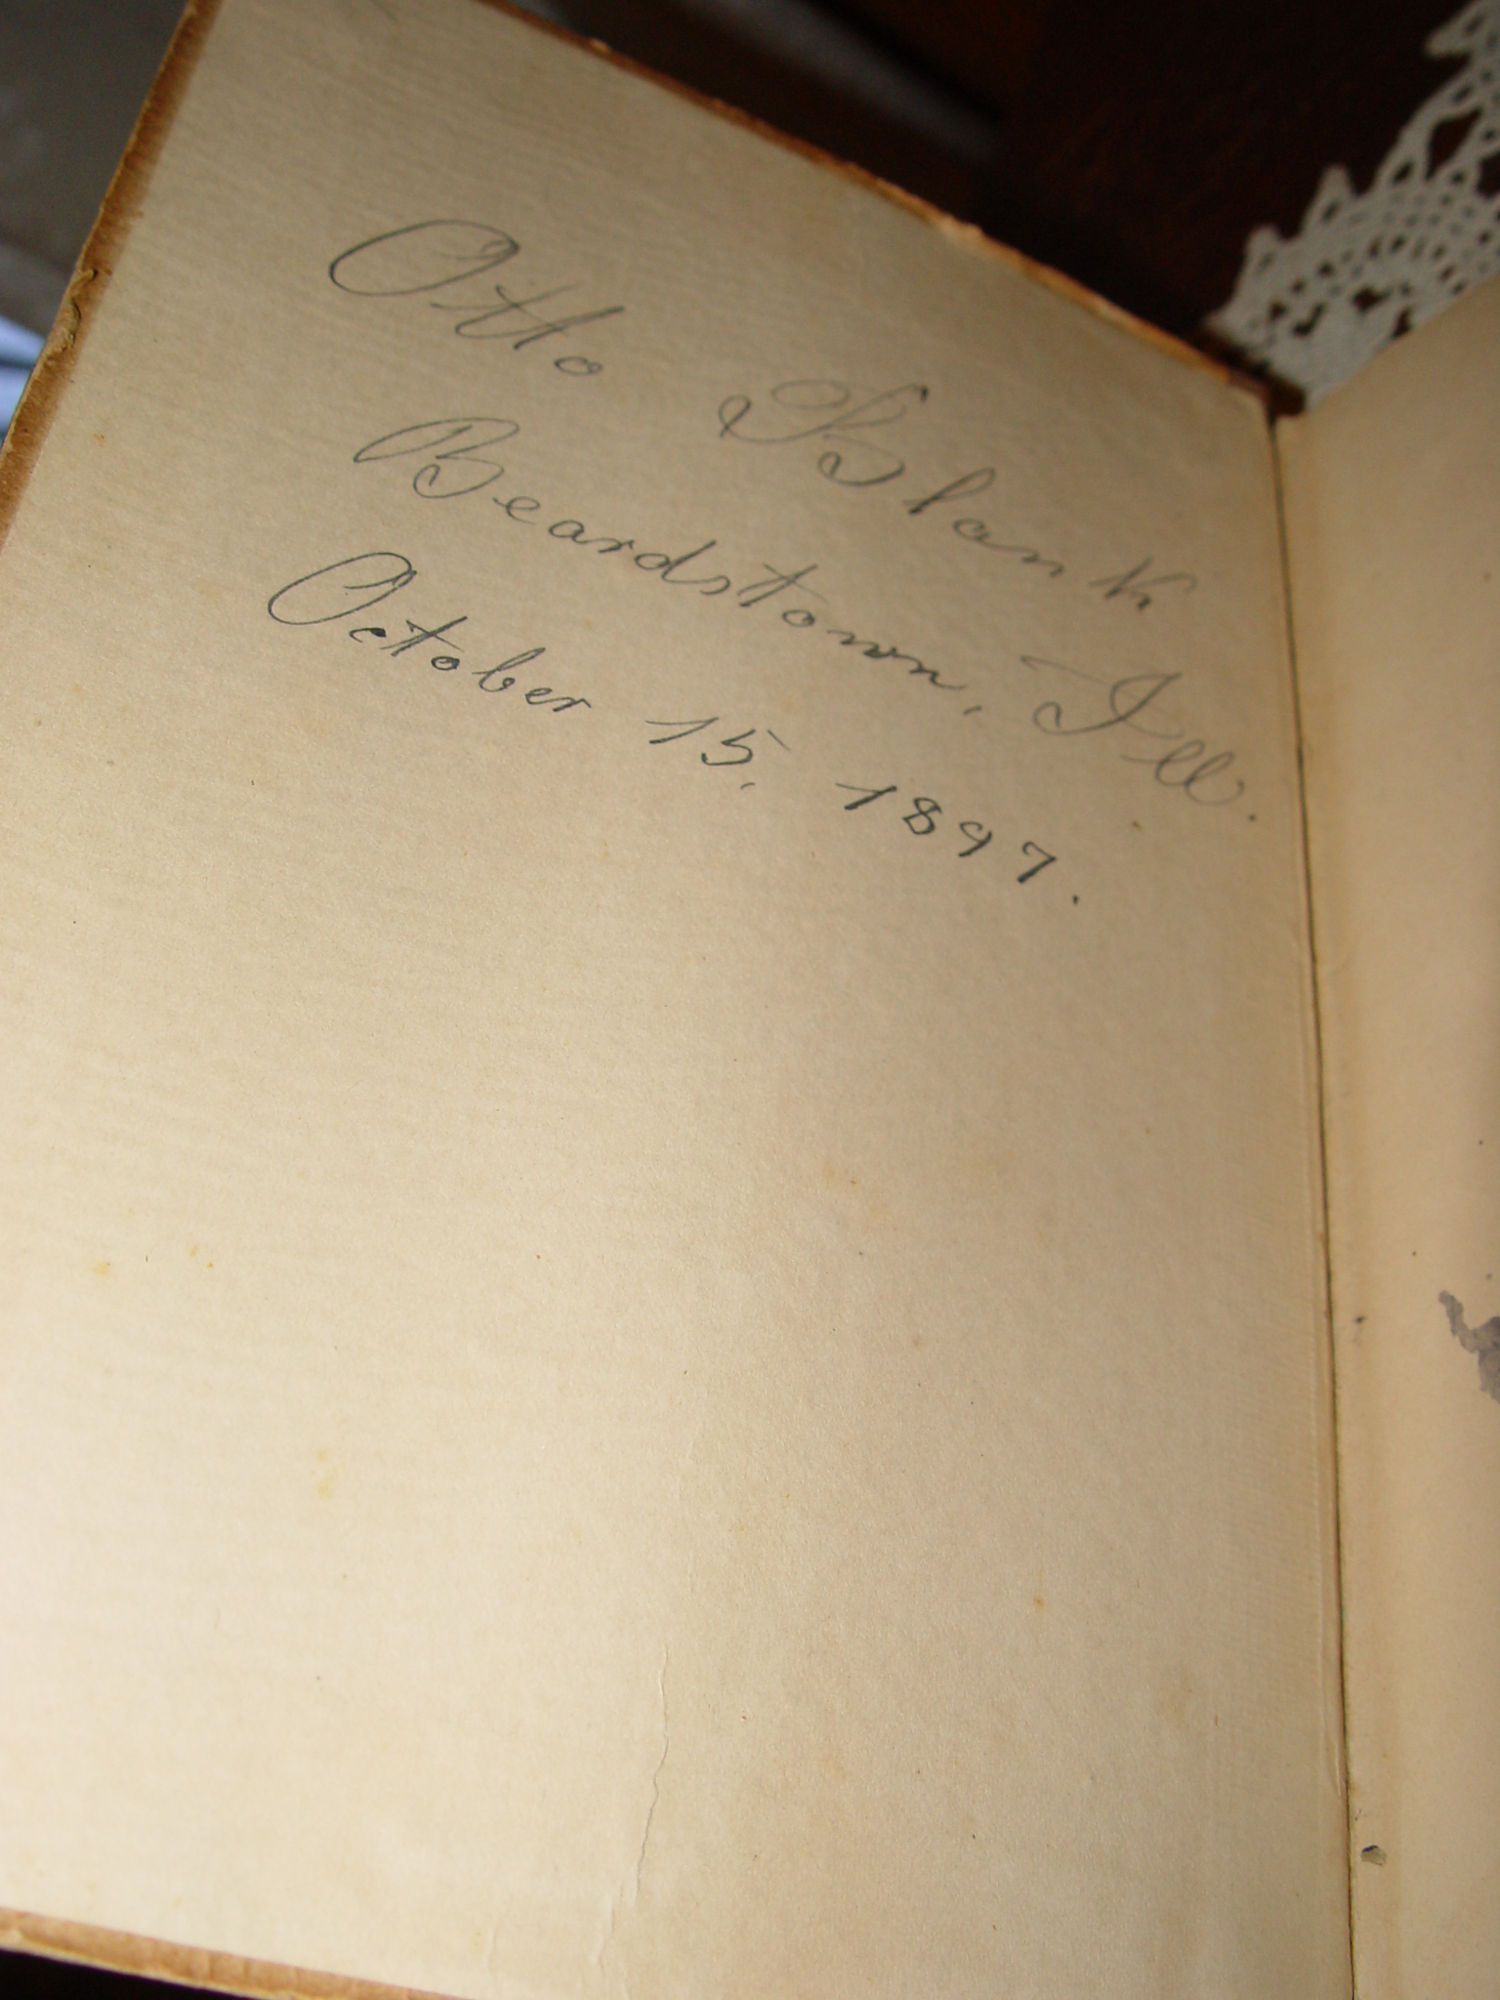 Otto Blank
Beardstown, Ill.
October 15, 1897.